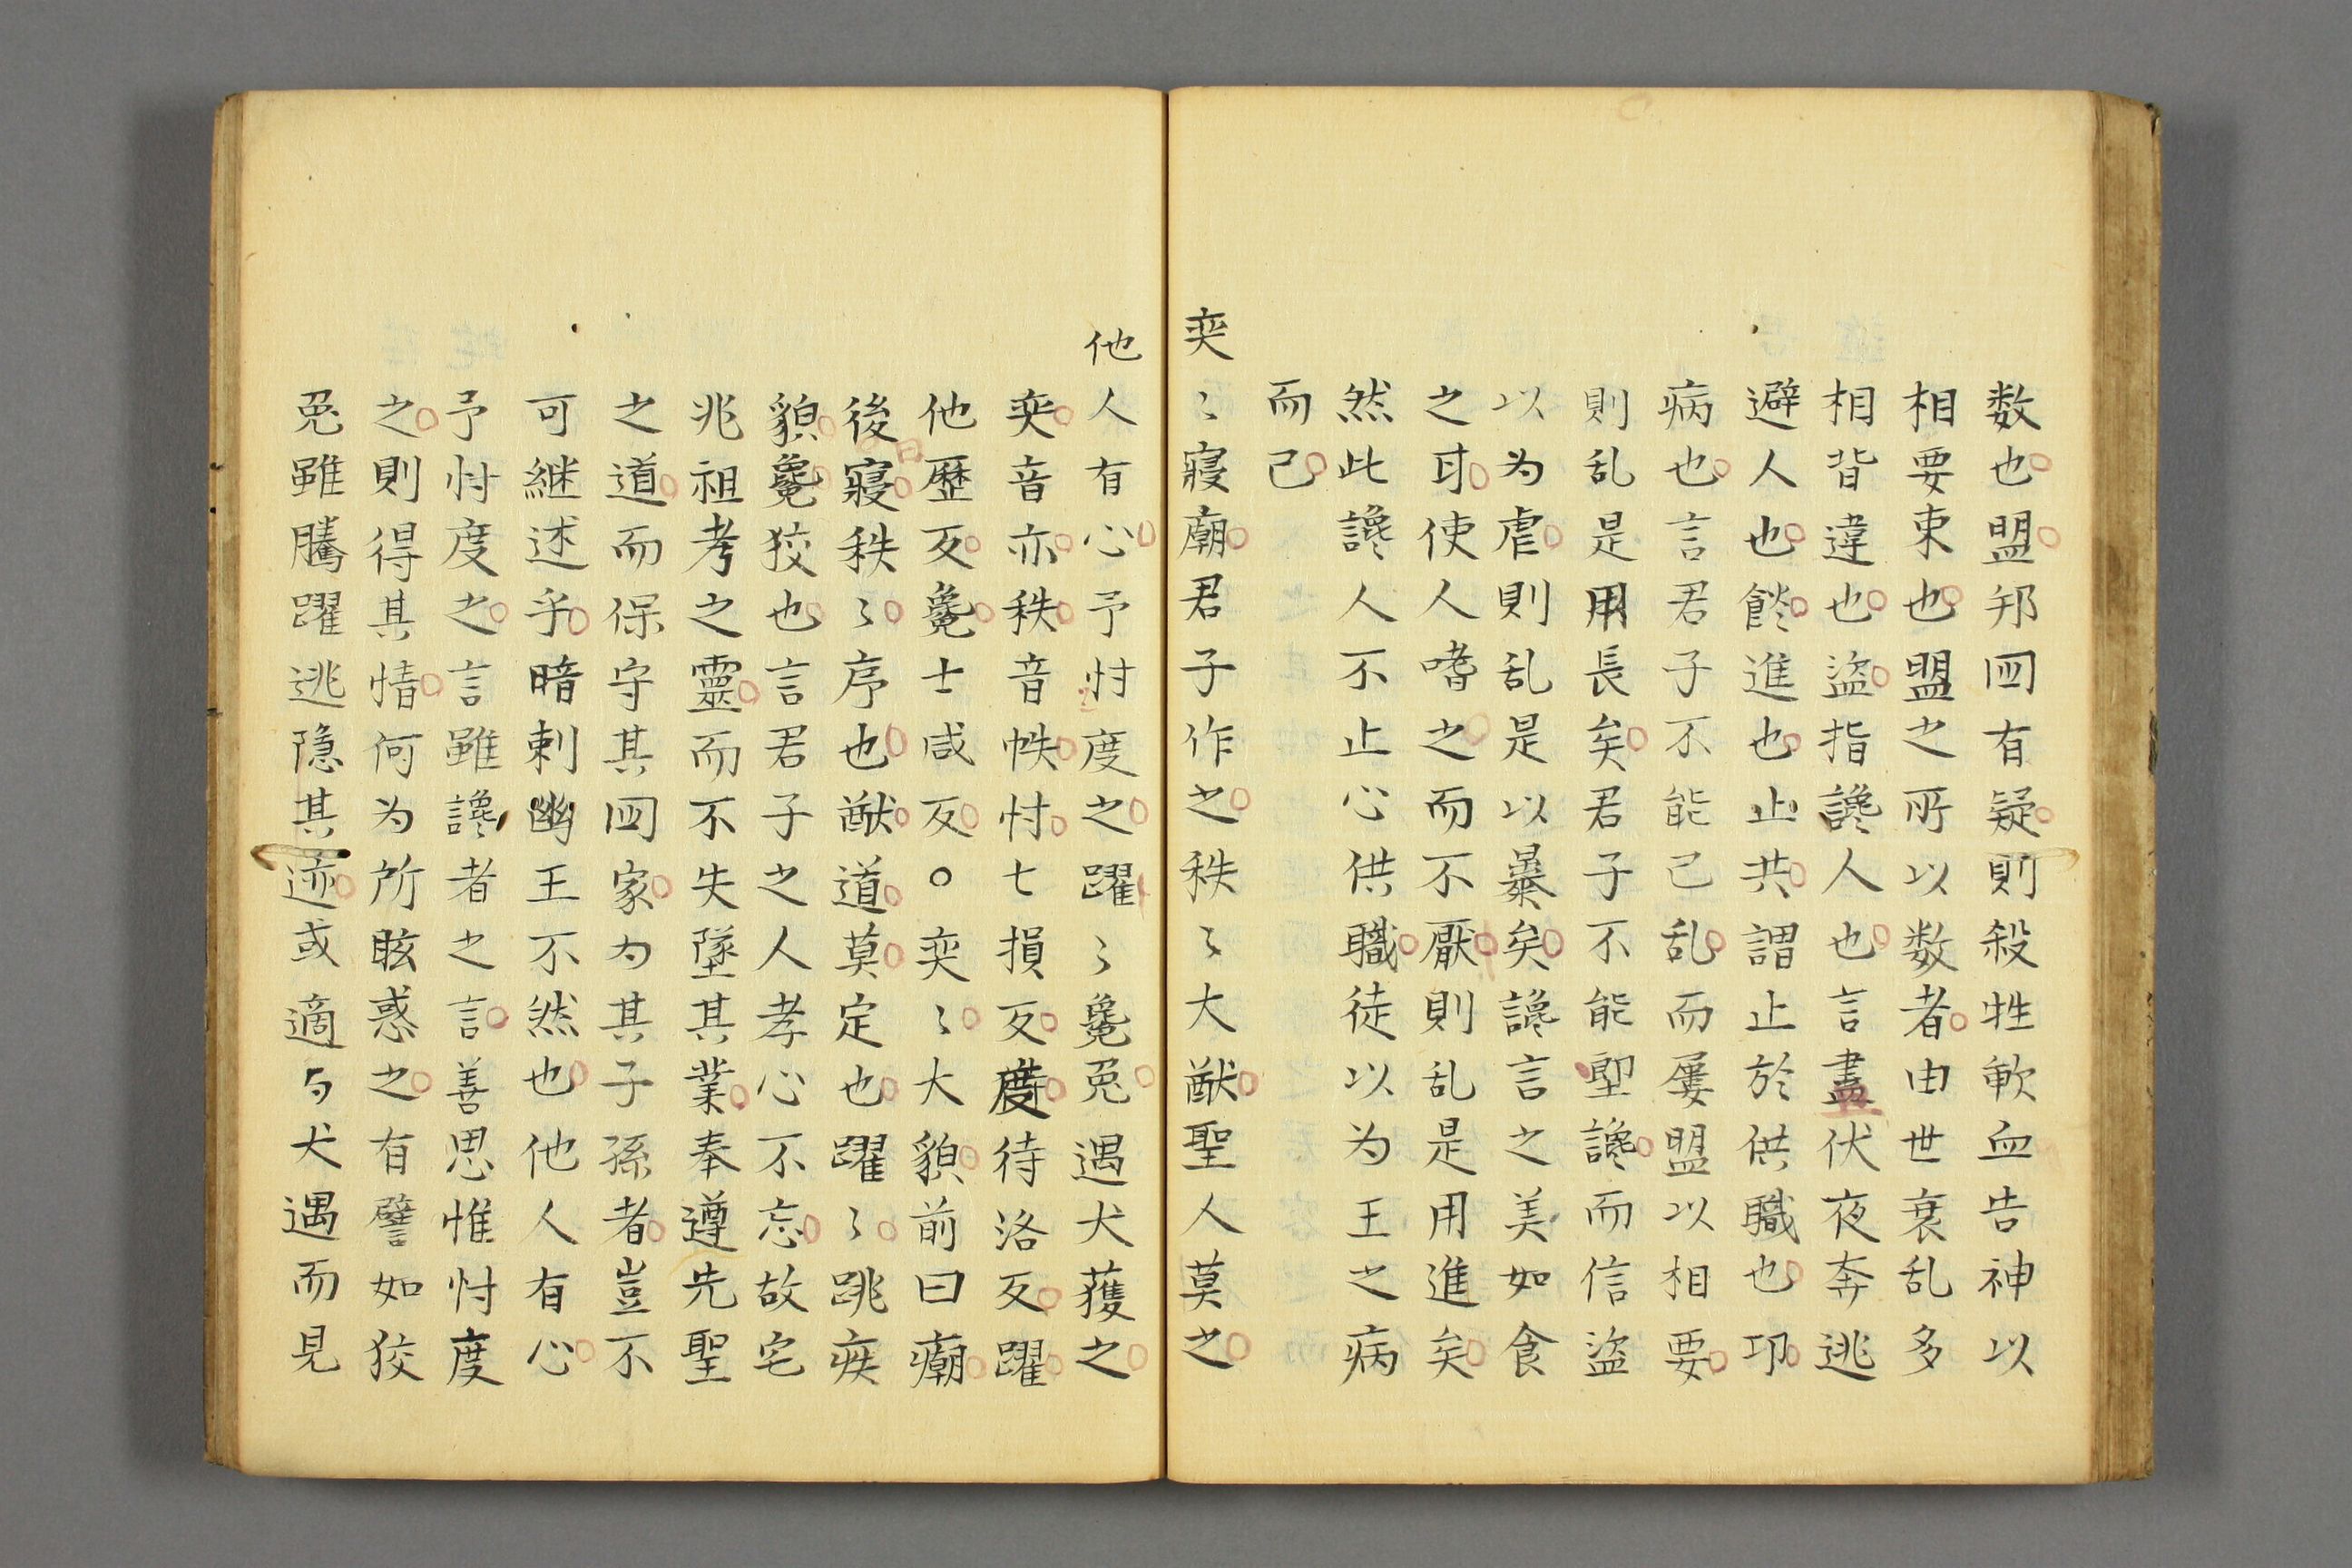 数也盟邦囯有疑則殺牲軟血告神以
相要束也盟之所以数者由世衰乱多
相背違也盗指讒人也言盡伏夜奔逃
避人也餤進也止共謂止於供職也邛
病也言君子不能已乱而屢盟以相要
則乱是用長矣君子不能堲讒而信盗
以为虐則乱是以暴矣讒言之美如食
之甘使人嗜之而不厭則乱是用進矣
然此讒人不止心供職徒以为王之病
而已
奕〻寢廟君子作之秩〻大猷聖人莫之
他人有心予忖度之躍〻毚兎遇犬獲之
奕音亦秩音帙忖七損反度待洛反躍
他歴反毚士咸反○奕〻大貌前曰廟
後寢秩〻序也猷道莫定也躍〻跳疾
貌毚狡也言君子之人孝心不忘故宅
兆祖考之靈而不失墜其業奉遵先聖
之道而保守其囯家为其子孫者豈不
可継述乎暗刺幽王不然也他人有心
予忖度之言雖讒者之言善思惟忖度
之則得其情何为所眩惑之有譬如狡
兎雖騰躍逃隐其迹或適与犬遇而見